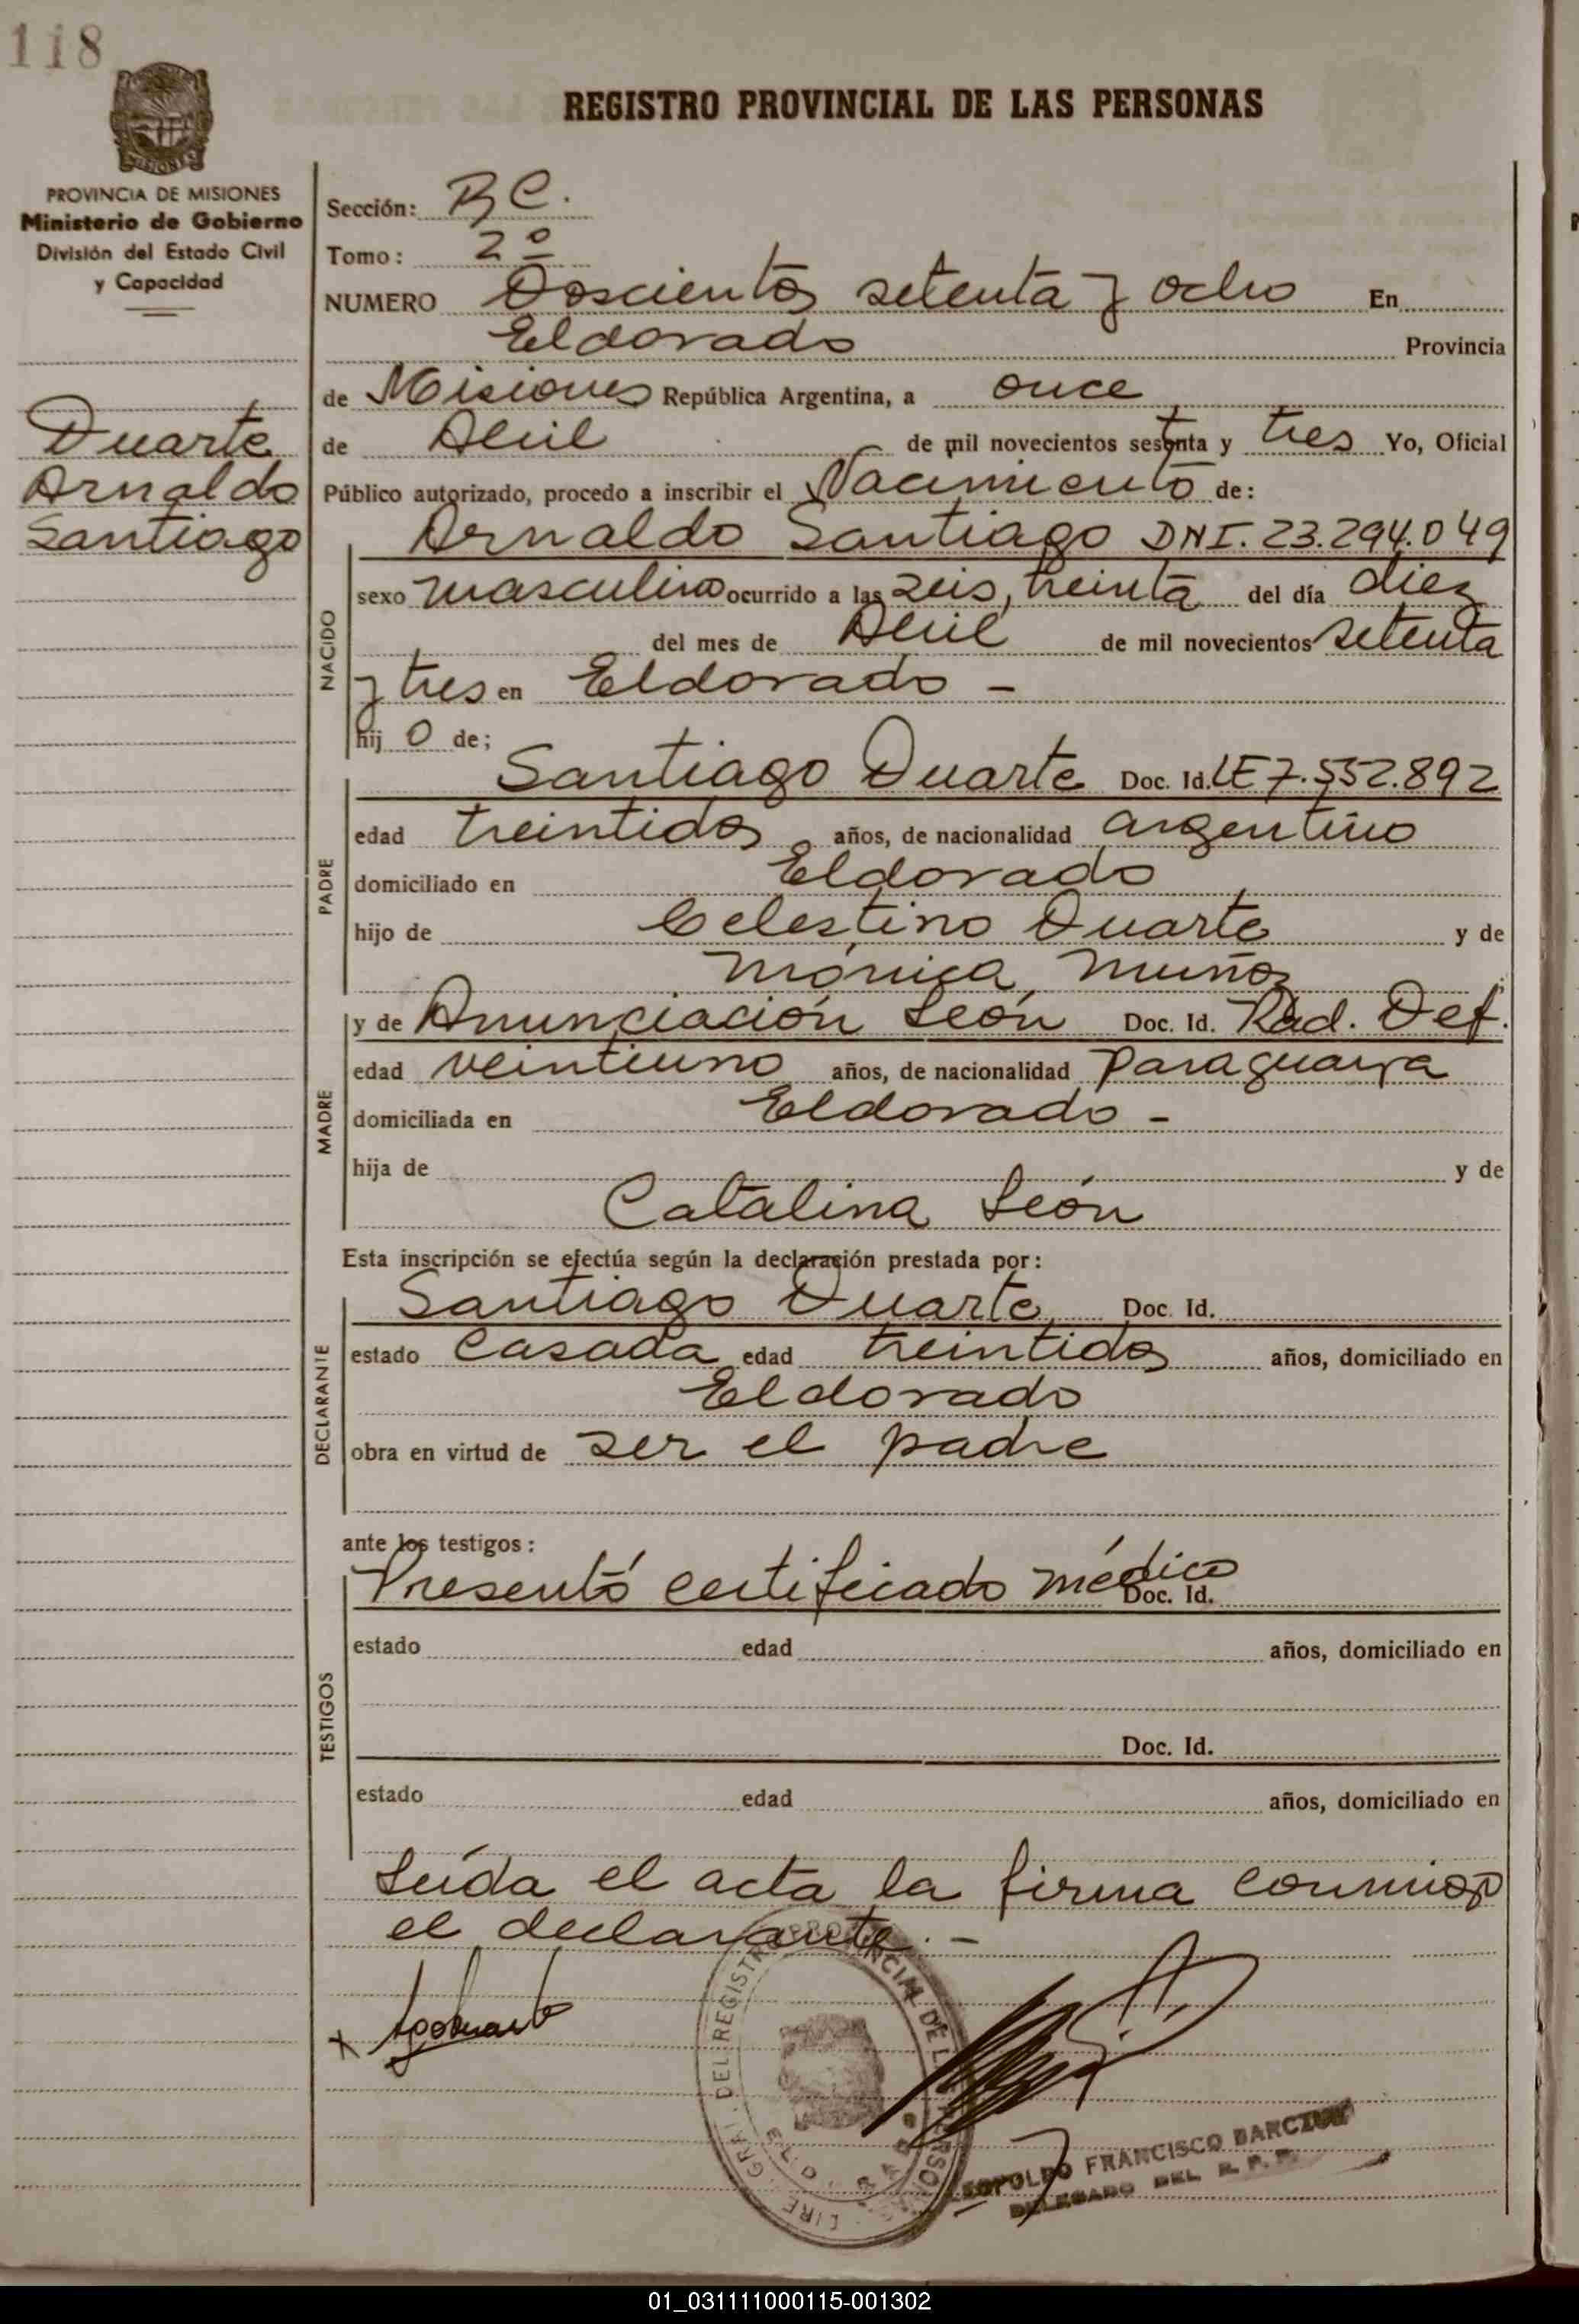 118
REGISTRO PROVINCIAL DE LAS PERSONAS
PROVINCIA DE MISIONES
Ministerio de Gobierno
División del Estado Civil
y Capacidad
Duarte
Arnaldo
Santiago
Sección:
Tomo: 2º
NUMERO Doscientos setenta y ocho En
Eldorado Provincia
de Misiones República Argentina, a once
de Abril de mil novecientos setenta y tres Yo, Oficial
Público autorizado, procedo a inscribir el Nacimiento de:
NACIDO
Arnaldo Santiago DNI. 23.294.049
sexo masculino ocurrido a las seis, treinta del día diez
del mes de Abril de mil novecientos setenta
y tres en Eldorado -
hijo de;
PADRE
Santiago Duarte Doc. Id. LE 7.552.892
edad treintidos años, de nacionalidad argentino
domiciliado en Eldorado
hijo de Celestino Duarte y de
Mónica Muñoz
MADRE
y de Anunciación León Doc. Id. Rad. Def.
edad veintiuno años, de nacionalidad paraguaya
domiciliada en Eldorado -
hija de y de
Catalina León
Esta inscripción se efectúa según la declaración prestada por:
DECLARANTE
Santiago Duarte Doc. Id.
estado casada edad treintidos años, domiciliado en
Eldorado
obra en virtud de ser el padre
ante los testigos:
TESTIGOS
Presentó certificado médico Doc. Id.
estado edad años, domiciliado en
Doc. Id.
estado edad años, domiciliado en
Leída el acta la firma conmigo
el declarante. -
LEOPOLDO FRANCISCO
DELEGADO DEL R. P. P.
01_031111000115-001302